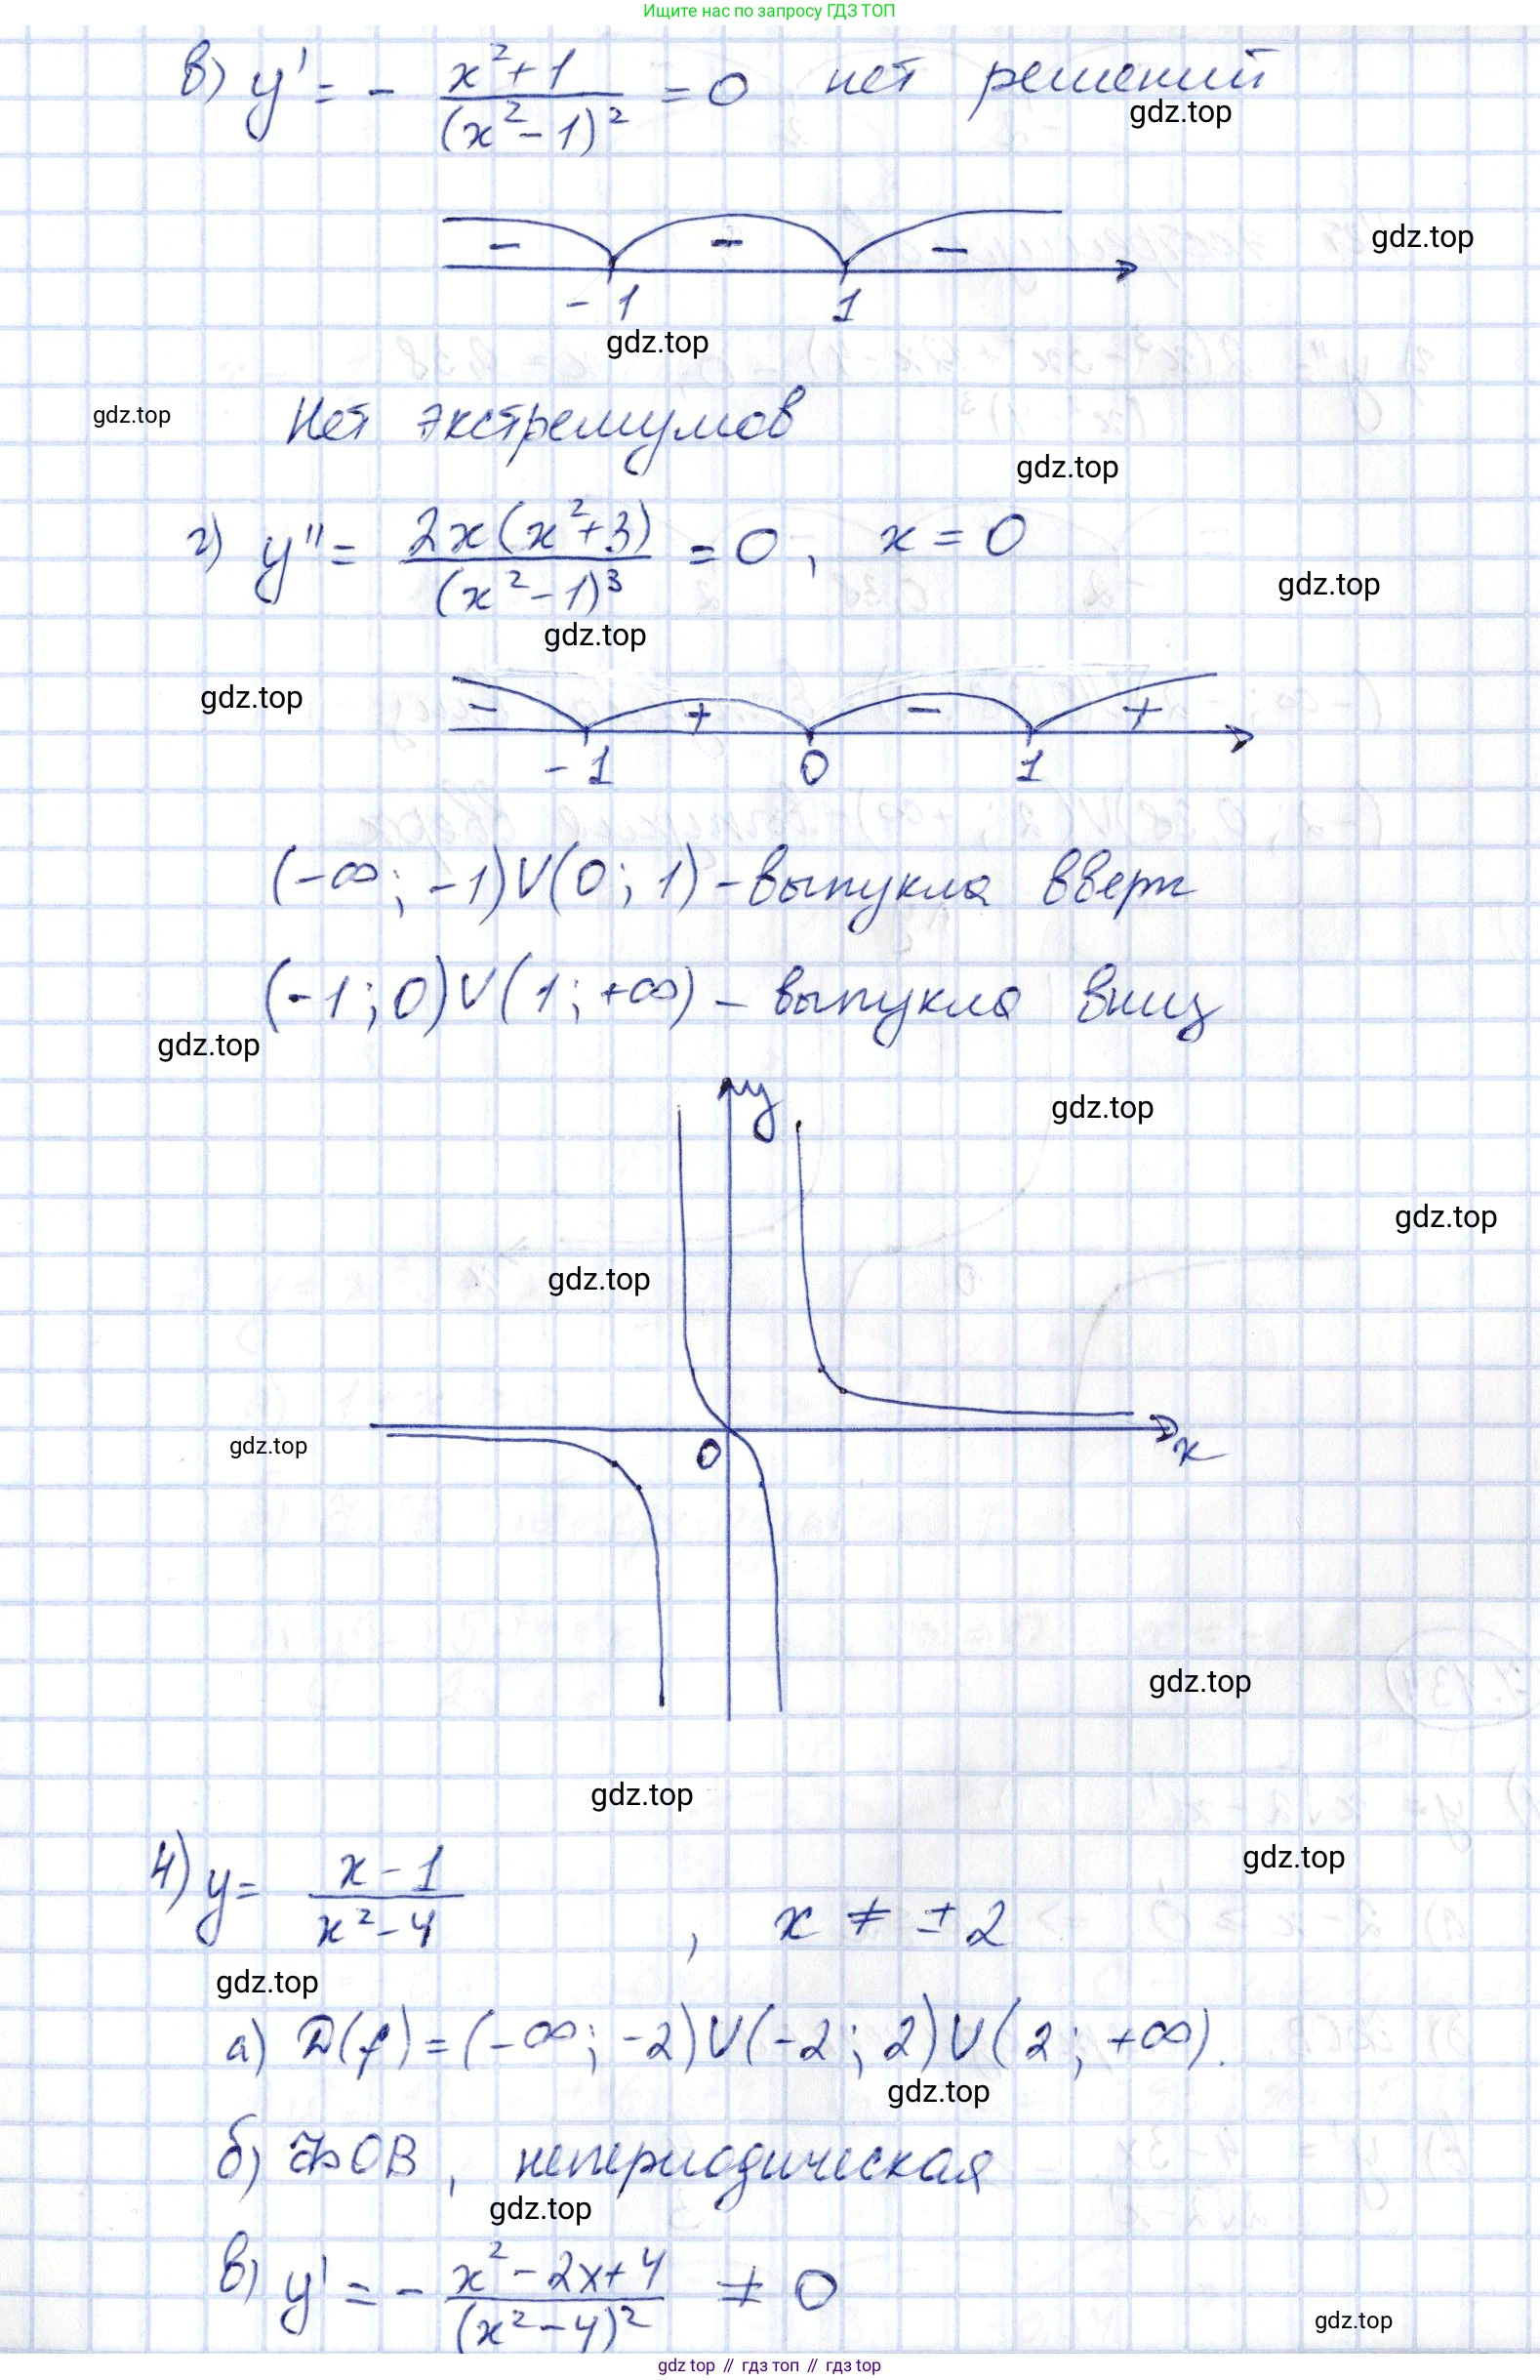 Ищите нас по запросу ГДЗ ТОП
в) y' = - (x²+1)/(x²-1)² = 0 нет решений
gdz.top
gdz.top
- - -
-1 1
gdz.top
Нет экстремумов
gdz.top
gdz.top
г) y'' = 2x(x²+3)/(x²-1)³ = 0, x = 0
gdz.top
gdz.top
gdz.top
- + - +
-1 0 1
(-∞; -1)∪(0; 1) - выпукла вверх
(-1; 0)∪(1; +∞) - выпукла вниз
gdz.top
y
gdz.top
gdz.top
gdz.top
gdz.top
0 x
gdz.top
gdz.top
4) y = (x-1)/(x²-4), x ≠ ±2
gdz.top
gdz.top
а) D(f) = (-∞; -2)∪(-2; 2)∪(2; +∞).
gdz.top
б) ОВ, непериодическая
gdz.top
в) y' = - (x²-2x+4)/(x²-4)² ≠ 0
gdz.top
gdz top // гдз топ // гдз top